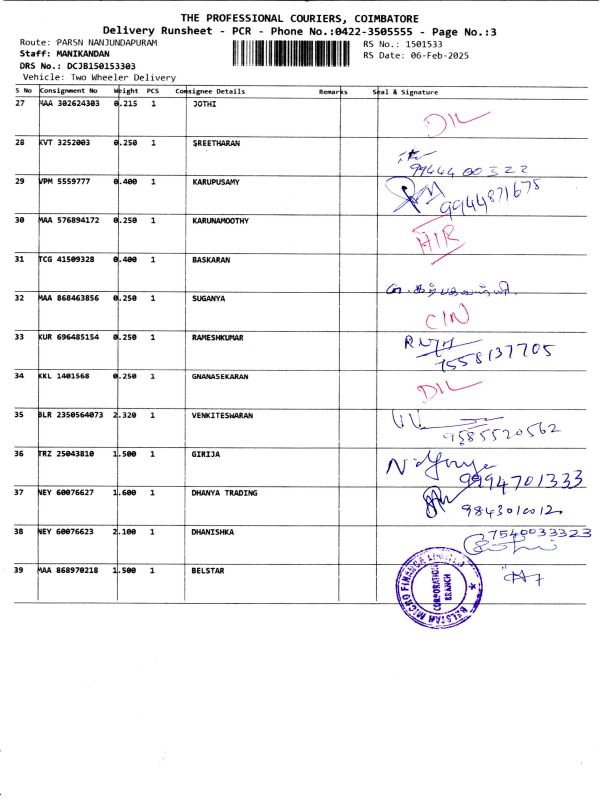 THE PROFESSIONAL COURIERS, COIMBATORE
Delivery Runsheet - PCR - Phone No.:0422-3505555 - Page No.:3
Route: PARSN NANJUNDAPURAM RS No.: 1501533
Staff: MANIKANDAN RS Date: 06-Feb-2025
DRS No.: DCJB150153303
Vehicle: Two Wheeler Delivery
S No Consignment No Weight PCS Consignee Details Remarks Seal & Signature
27 MAA 302624303 0.215 1 JOTHI DIL
28 KVT 3252003 0.250 1 SREETHARAN
9944400322
29 VPM 5559777 0.400 1 KARUPUSAMY 9944871675
30 MAA 576894172 0.250 1 KARUNAMOOTHY HIR
31 TCG 41509328 0.400 1 BASKARAN
32 MAA 868463856 0.250 1 SUGANYA CIN
33 KUR 696485154 0.250 1 RAMESHKUMAR
7558137705
34 KKL 1401568 0.250 1 GNANASEKARAN DIL
35 BLR 2350564073 2.320 1 VENKITESWARAN
9585520562
36 TRZ 25043810 1.500 1 GIRIJA 9994701333
37 NEY 60076627 1.600 1 DHANYA TRADING 9843010012
38 NEY 60076623 2.100 1 DHANISHKA 7540033323
39 MAA 868970218 1.500 1 BELSTAR
BELSTAR MICRO FINANCE LIMITED
CORPORATION
BRANCH